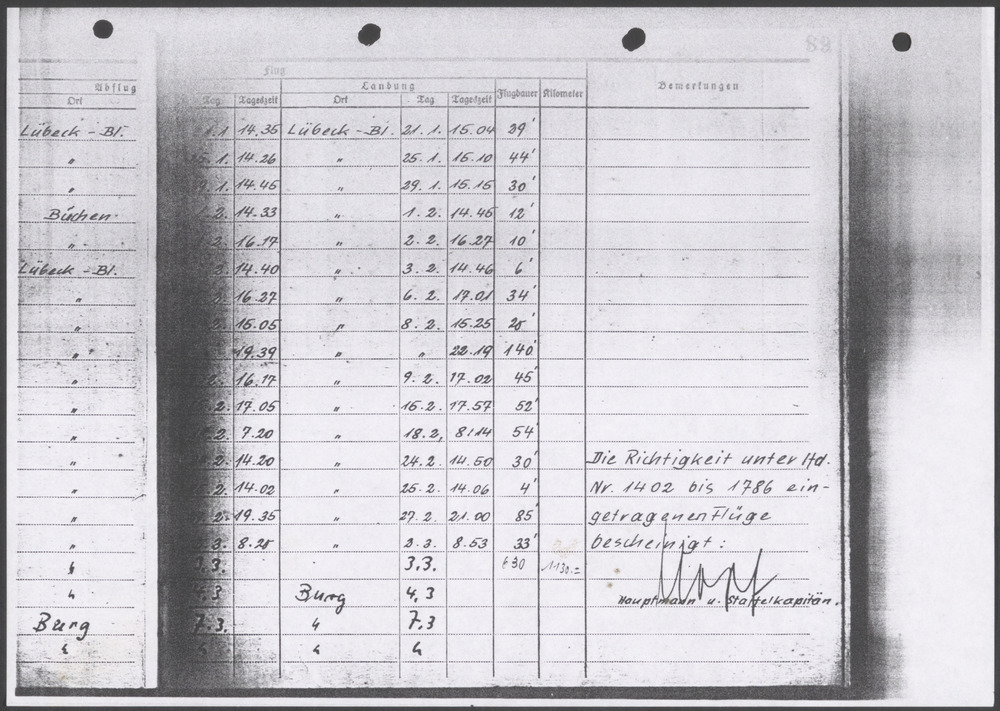 89
Flug
Abflug Landung Flugdauer Kilometer Bemerkungen
Ort Tag Tageszeit Ort Tag Tageszeit
Lübeck - Bl. 14.35 Lübeck - Bl. 21. 1. 15.04 29'
" 1. 14.26 " 25. 1. 15.10 44'
" 1. 14.45 " 29. 1. 15.15 30'
Büchen 2. 14.33 " 1. 2. 14.45 12'
" 2. 16.17 " 2. 2. 16.27 10'
Lübeck - Bl. 14.40 " 3. 2. 14.46 6'
" 2. 16.27 " 6. 2. 17.01 34'
" 2. 15.05 " 8. 2. 15.25 20'
" 19.39 " " 22.19 140'
" 2. 16.17 " 9. 2. 17.02 45'
" 2. 17.05 " 15. 2. 17.57 52'
" 2. 7.20 " 18. 2. 8.14 54'
" 2. 14.20 " 24. 2. 14.50 30' Die Richtigkeit unter lfd.
" 2. 14.02 " 25. 2. 14.06 4' Nr. 1402 bis 1786 ein-
" 2. 19.35 " 27. 2. 21.00 85' getragenen Flüge
" 3. 8.20 " 2. 3. 8.53 33' bescheinigt:
" 3.3. 3.3. 630 1130.=
" 4.3 Burg 4.3 Hauptmann u. Staffelkapitän.
Burg 7.3. " 7.3
" " " "